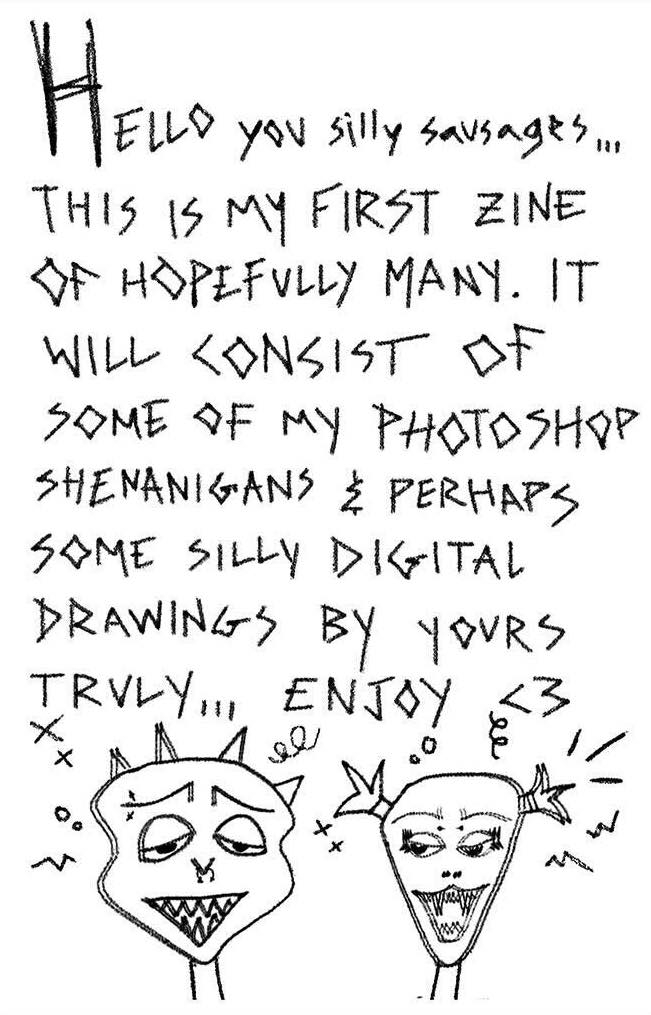 HELLO you silly sausages...
THIS IS MY FIRST ZINE
OF HOPEFULLY MANY. IT
WILL CONSIST OF
SOME OF MY PHOTOSHOP
SHENANIGANS & PERHAPS
SOME SILLY DIGITAL
DRAWINGS BY YOURS
TRULY... ENJOY <3